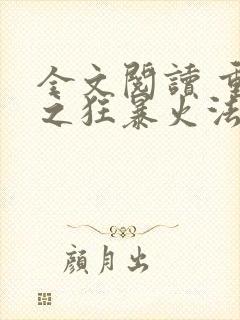 全文閱讀 重
之狂暴火法
顏月出